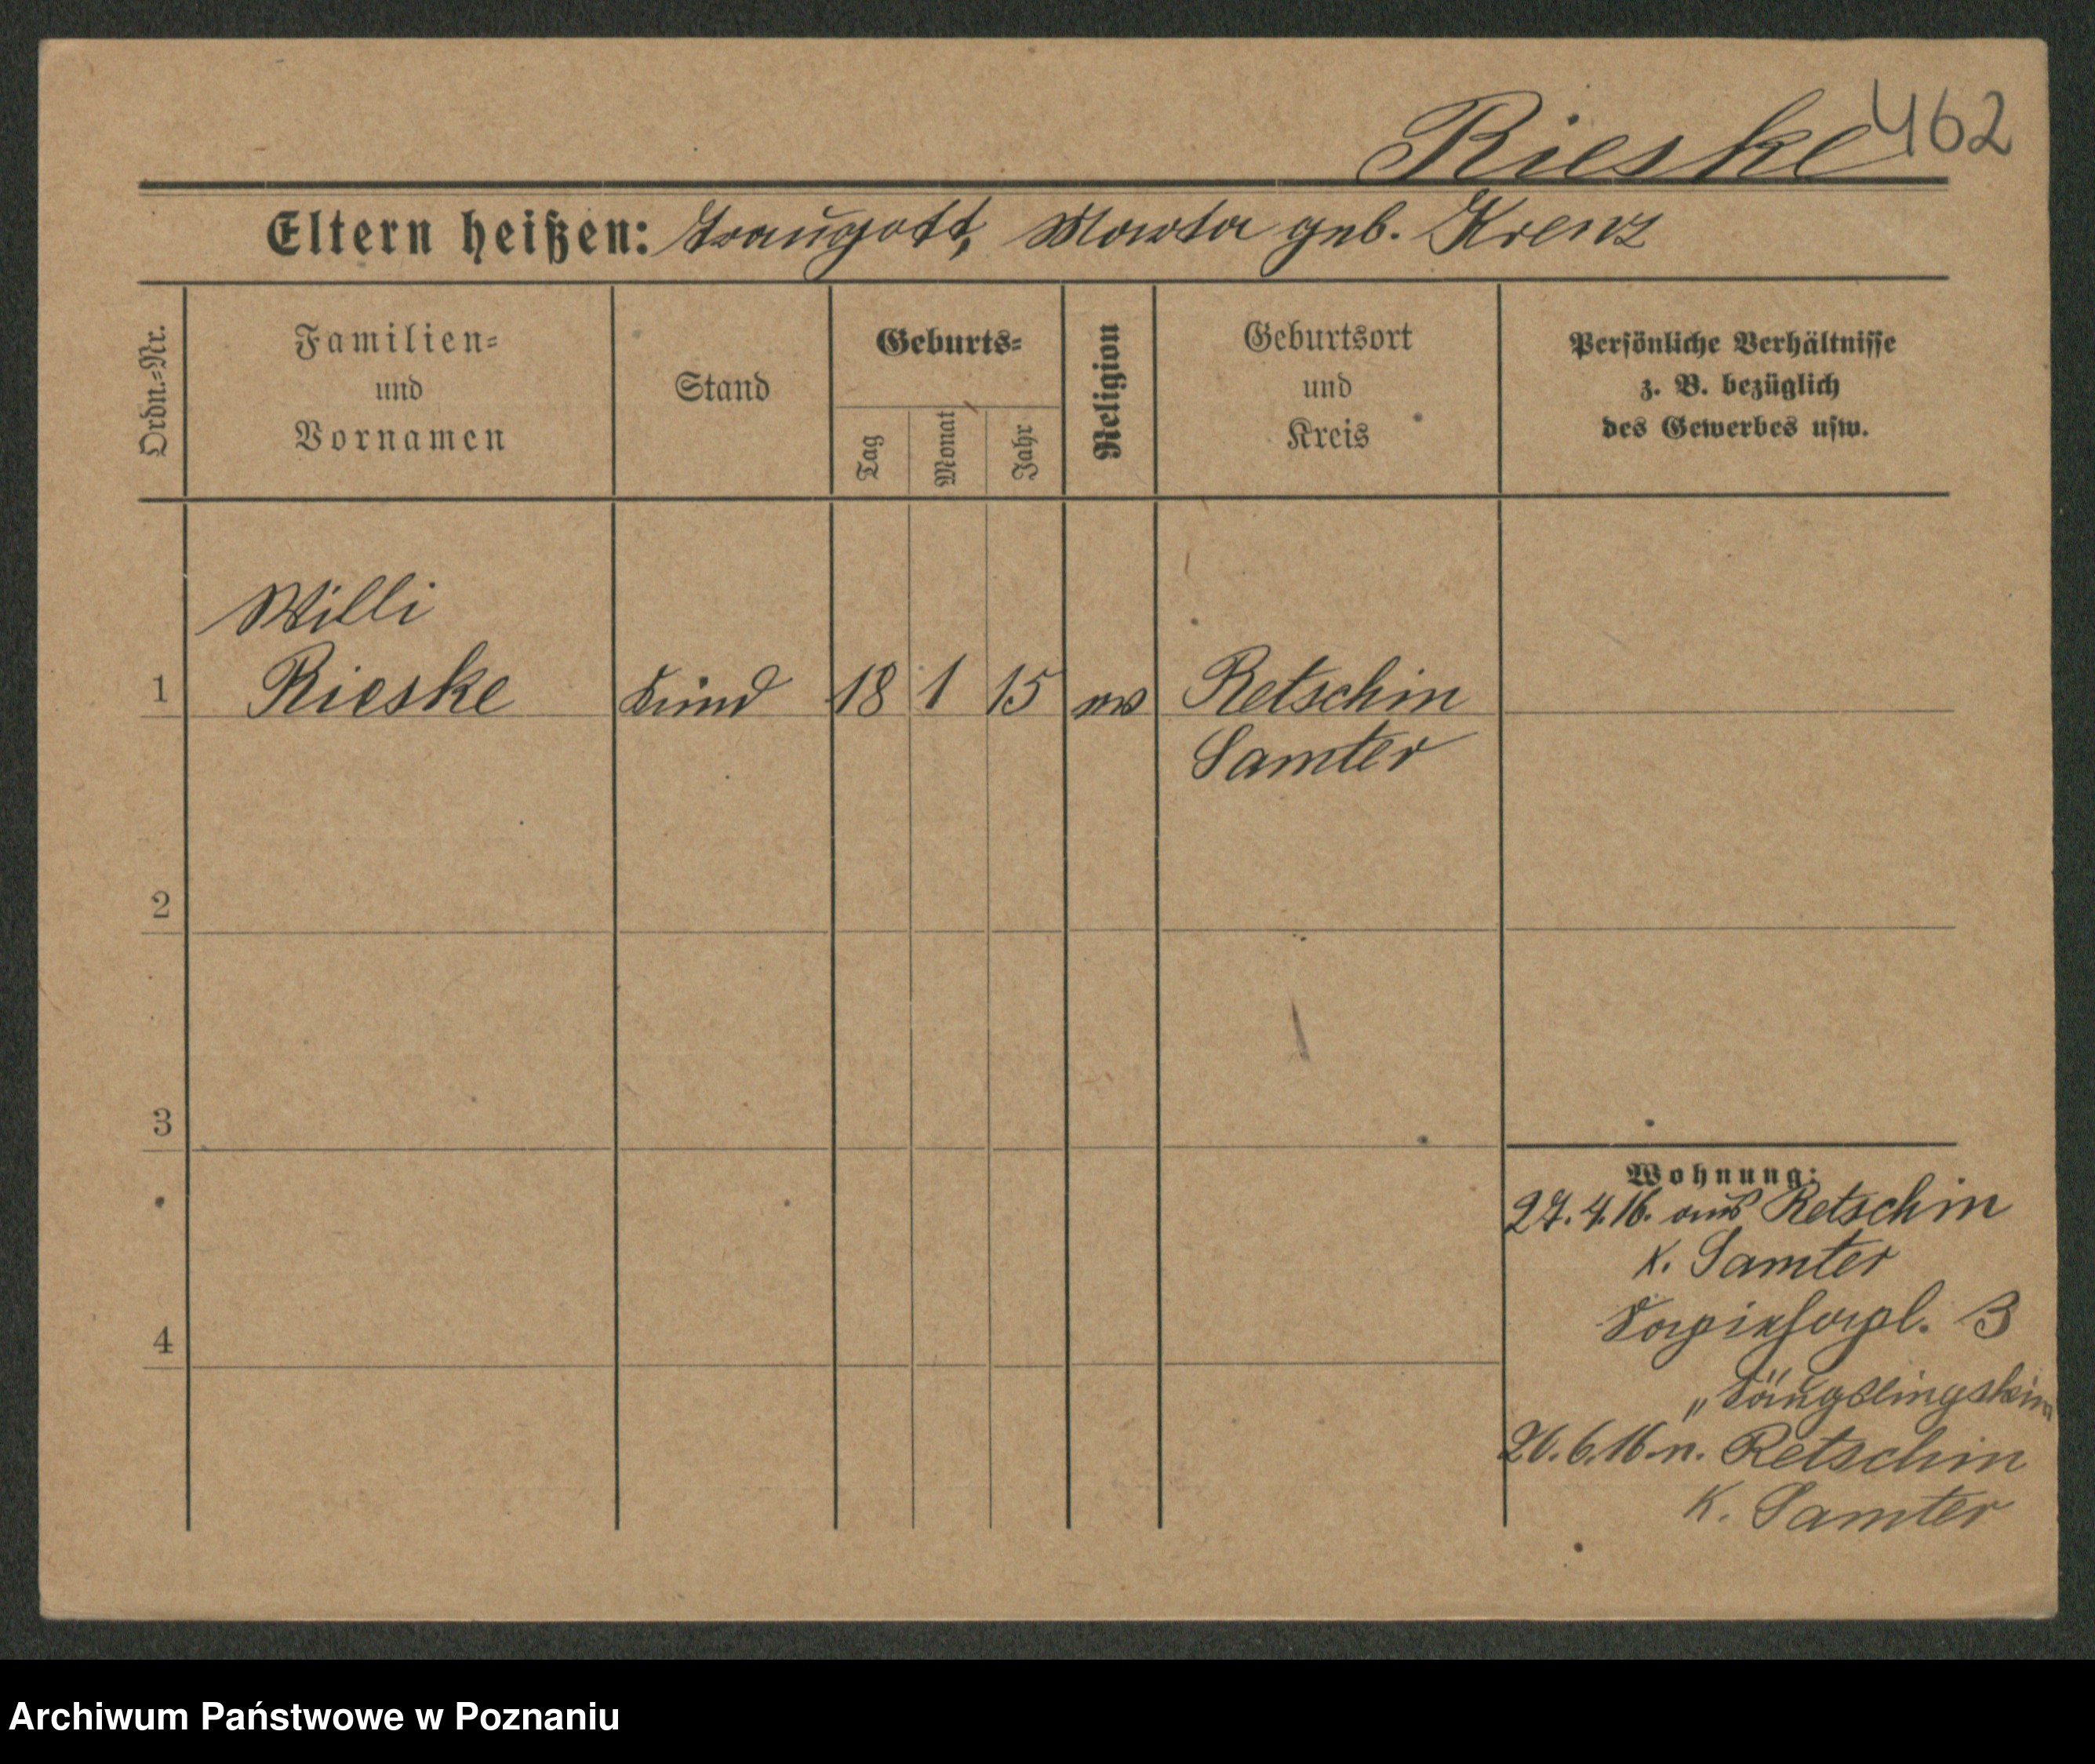 Rieske 462
Eltern heißen: Traugott, Marta geb. Krenz
Ordn.=Nr.
Familien=
und
Vornamen
Stand
Geburts=
Tag
Monat
Jahr
Religion
Geburtsort
und
Kreis
Persönliche Verhältnisse
z. B. bezüglich
des Gewerbes usw.
Willi
1 Rieske Kind 18 1 15 ev Retschin
Samter
2
3
4
Wohnung:
27.4.16. aus Retschin
K. Samter
3
" Säuglingsheim
26.6.16. n. Retschin
K. Samter
Archiwum Państwowe w Poznaniu